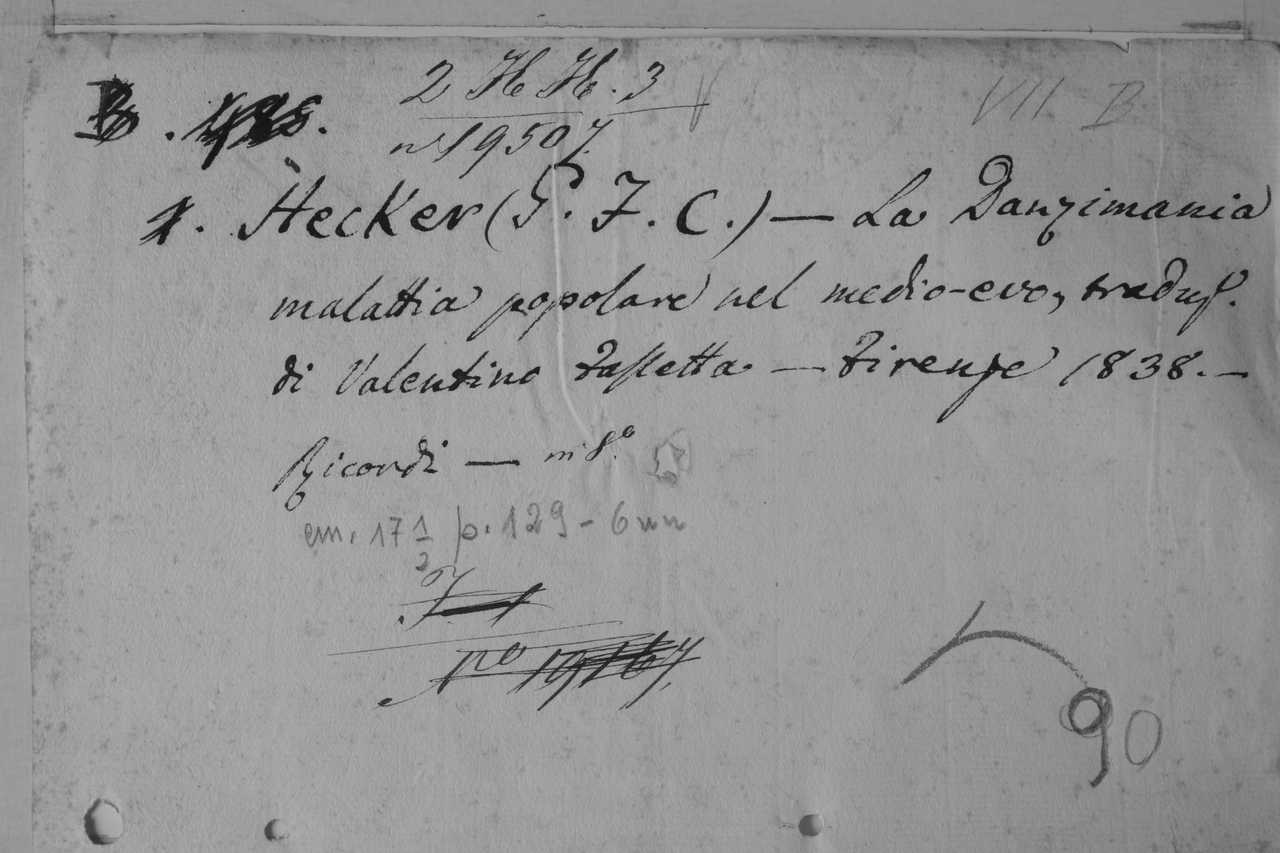 2 H H. 3
VII B
B.
nº 19507
1. Hecker (G. F. C.) — La Danzimania
malattia popolare nel medio-evo, traduz.
di Valentino Fassetta — Firenze 1838. —
Ricordi — in 8º
cm. 17 1/2 p. 129 - 6 nn
Nº 19167.
90